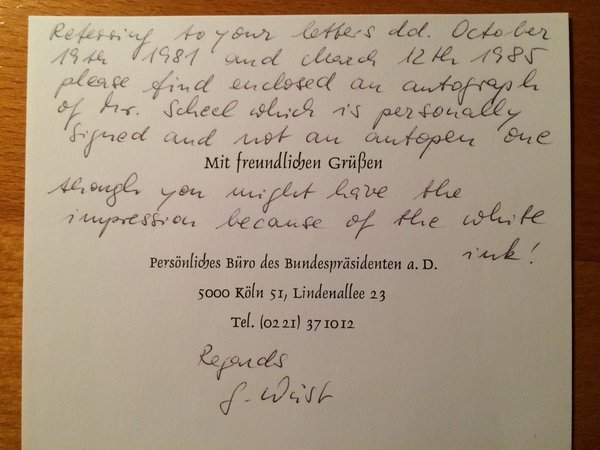 Referring to your letters dd. October
19th 1981 and March 12th 1985
please find enclosed an autograph
of Mr. Scheel which is personally
signed and not an autopen one
Mit freundlichen Grüßen
though you might have the
impression because of the white
ink!
Persönliches Büro des Bundespräsidenten a. D.
5000 Köln 51, Lindenallee 23
Tel. (02 21) 37 10 12
Regards
G. Wüst